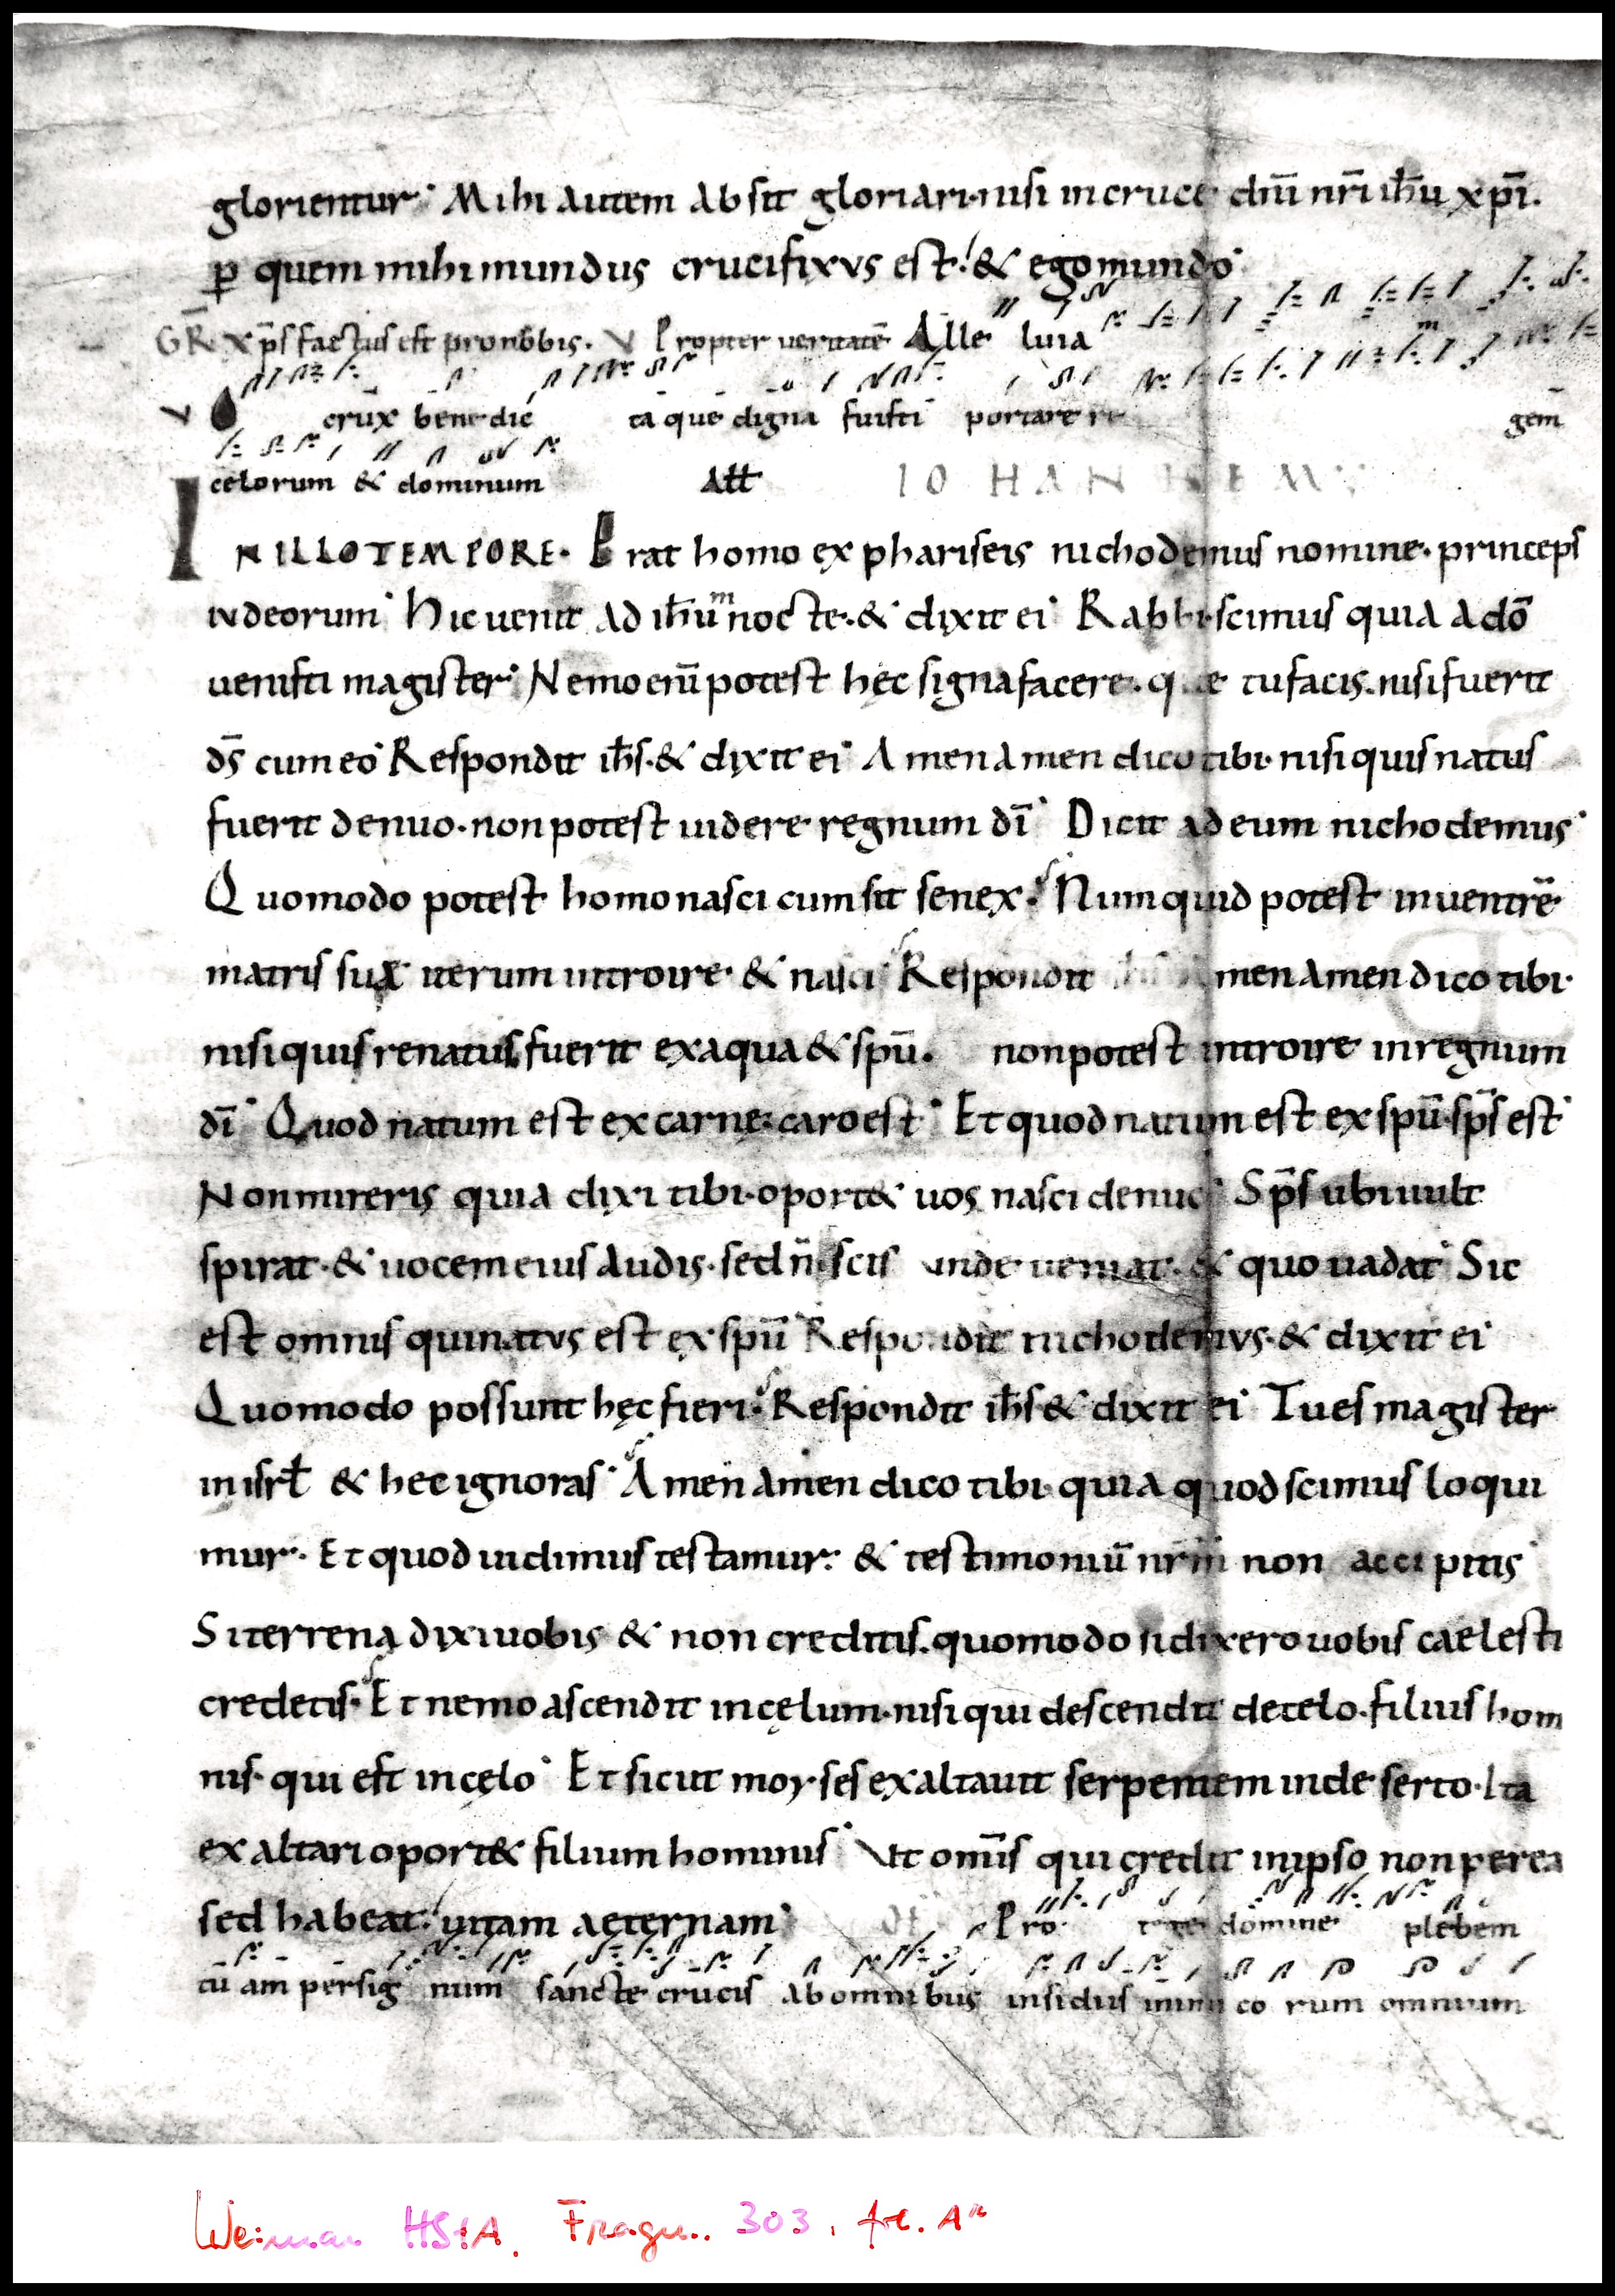 glorientur. Mihi autem absit gloriari. nisi in cruce dñi nr̄i ih̄u xp̄i.
p̱ quem mihi mundus crucifixus est. & ego mundo
GR̄ Xp̄s factus est pro nobis. V Propter ueritatē Alle luia
V O crux benedic ta que digna fuisti portare re gem
celorum & dominum All
IOHANNEM
IN ILLO TEMPORE. Erat homo ex phariseis nichodemus nomine. princeps
iudeorum. Hic uenit ad ih̄um nocte. & dixit ei. Rabbi. scimus quia a dō
uenisti magister. Nemo enī potest hęc signa facere. que tu facis. nisi fuerit
d̄s cum eo. Respondit ih̄s. & dixit ei. Amen amen dico tibi. nisi quis natus
fuerit denuo. non potest uidere regnum dī. Dicit ad eum nichodemus.
Quomodo potest homo nasci cum sit senex. Numquid potest in uentrē
matris suæ iterum introire. & nasci. Respondit ih̄s Amen amen dico tibi.
nisi quis renatus fuerit ex aqua & spū. non potest introire in regnum
dī. Quod natum est ex carne. caro est. Et quod natum est ex spū. sp̄s est.
Non mireris quia dixi tibi. oport& uos nasci denuo. Sp̄s ubi uult
spirat. & uocem eius audis. sed n̄ scis unde ueniat. & quo uadat. Sic
est omnis qui natus est ex spū. Respondit nichodemus. & dixit ei
Quomodo possunt hęc fieri. Respondit ih̄s & dixit ei. Tu es magister
in isrł & hec ignoras. Amen amen dico tibi quia quod scimus loqui
mur. Et quod uidimus testamur. & testimoniū nr̄m non accipitis.
Si terrena dixi uobis & non creditis. quomodo si dixero uobis caelesti
credetis. Et nemo ascendit in cęlum. nisi qui descendit de celo. filius hom
nis. qui est in cęlo. Et sicut moyses exaltauit serpentem in deserto. Ita
exaltari oport& filium hominis. Vt om̄is qui credit in ipso non perea
sed habeat uitam aeternam. Of Pro tege domine plebem
tuam per signum sancte crucis ab omnibus insidiis inimicorum omnium
Weimar HStA. Fragm. 303, fol. Ar